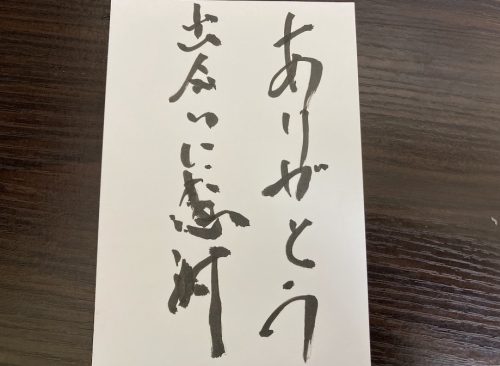 ありがとう
出会いに感謝